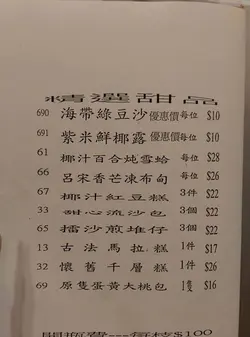 精選甜品
690 海帶綠豆沙 優惠價 每位 $10
691 紫米鮮椰露 優惠價 每位 $10
61 椰汁百合炖雪蛤 每位 $28
66 呂宋香芒凍布甸 每位 $26
67 椰汁紅豆糕 3件 $22
33 甜心流沙包 3個 $22
65 擂沙煎堆仔 3個 $22
13 古法馬拉糕 1件 $17
32 懷舊千層糕 1件 $26
69 原隻蛋黃大桃包 1隻 $16
開瓶費---每枝$100